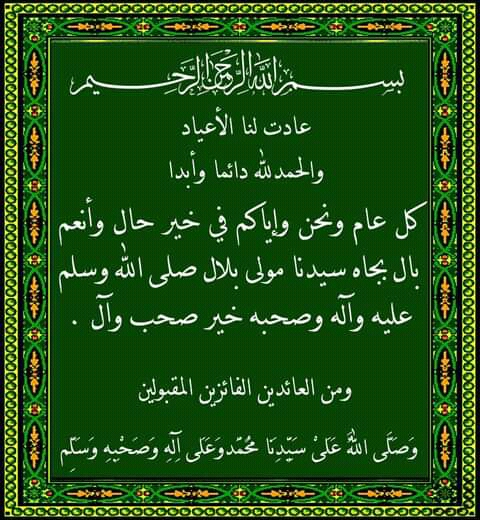 بسم الله الرحمن الرحيم
عادت لنا الأعياد
والحمدلله دائما وأبدا
كل عام ونحن وإياكم في خير حال وأنعم
بال بجاه سيدنا مولى بلال صلى الله وسلم
عليه وآله وصحبه خير صحب وآل .
ومن العائدين الفائزين المقبولين
وَصَلَّى اللهُ عَلَىْ سَيِّدِنَا مُحَمَّدٍ وَعَلَى آلِهِ وَصَحْبِهِ وَسَلِّم